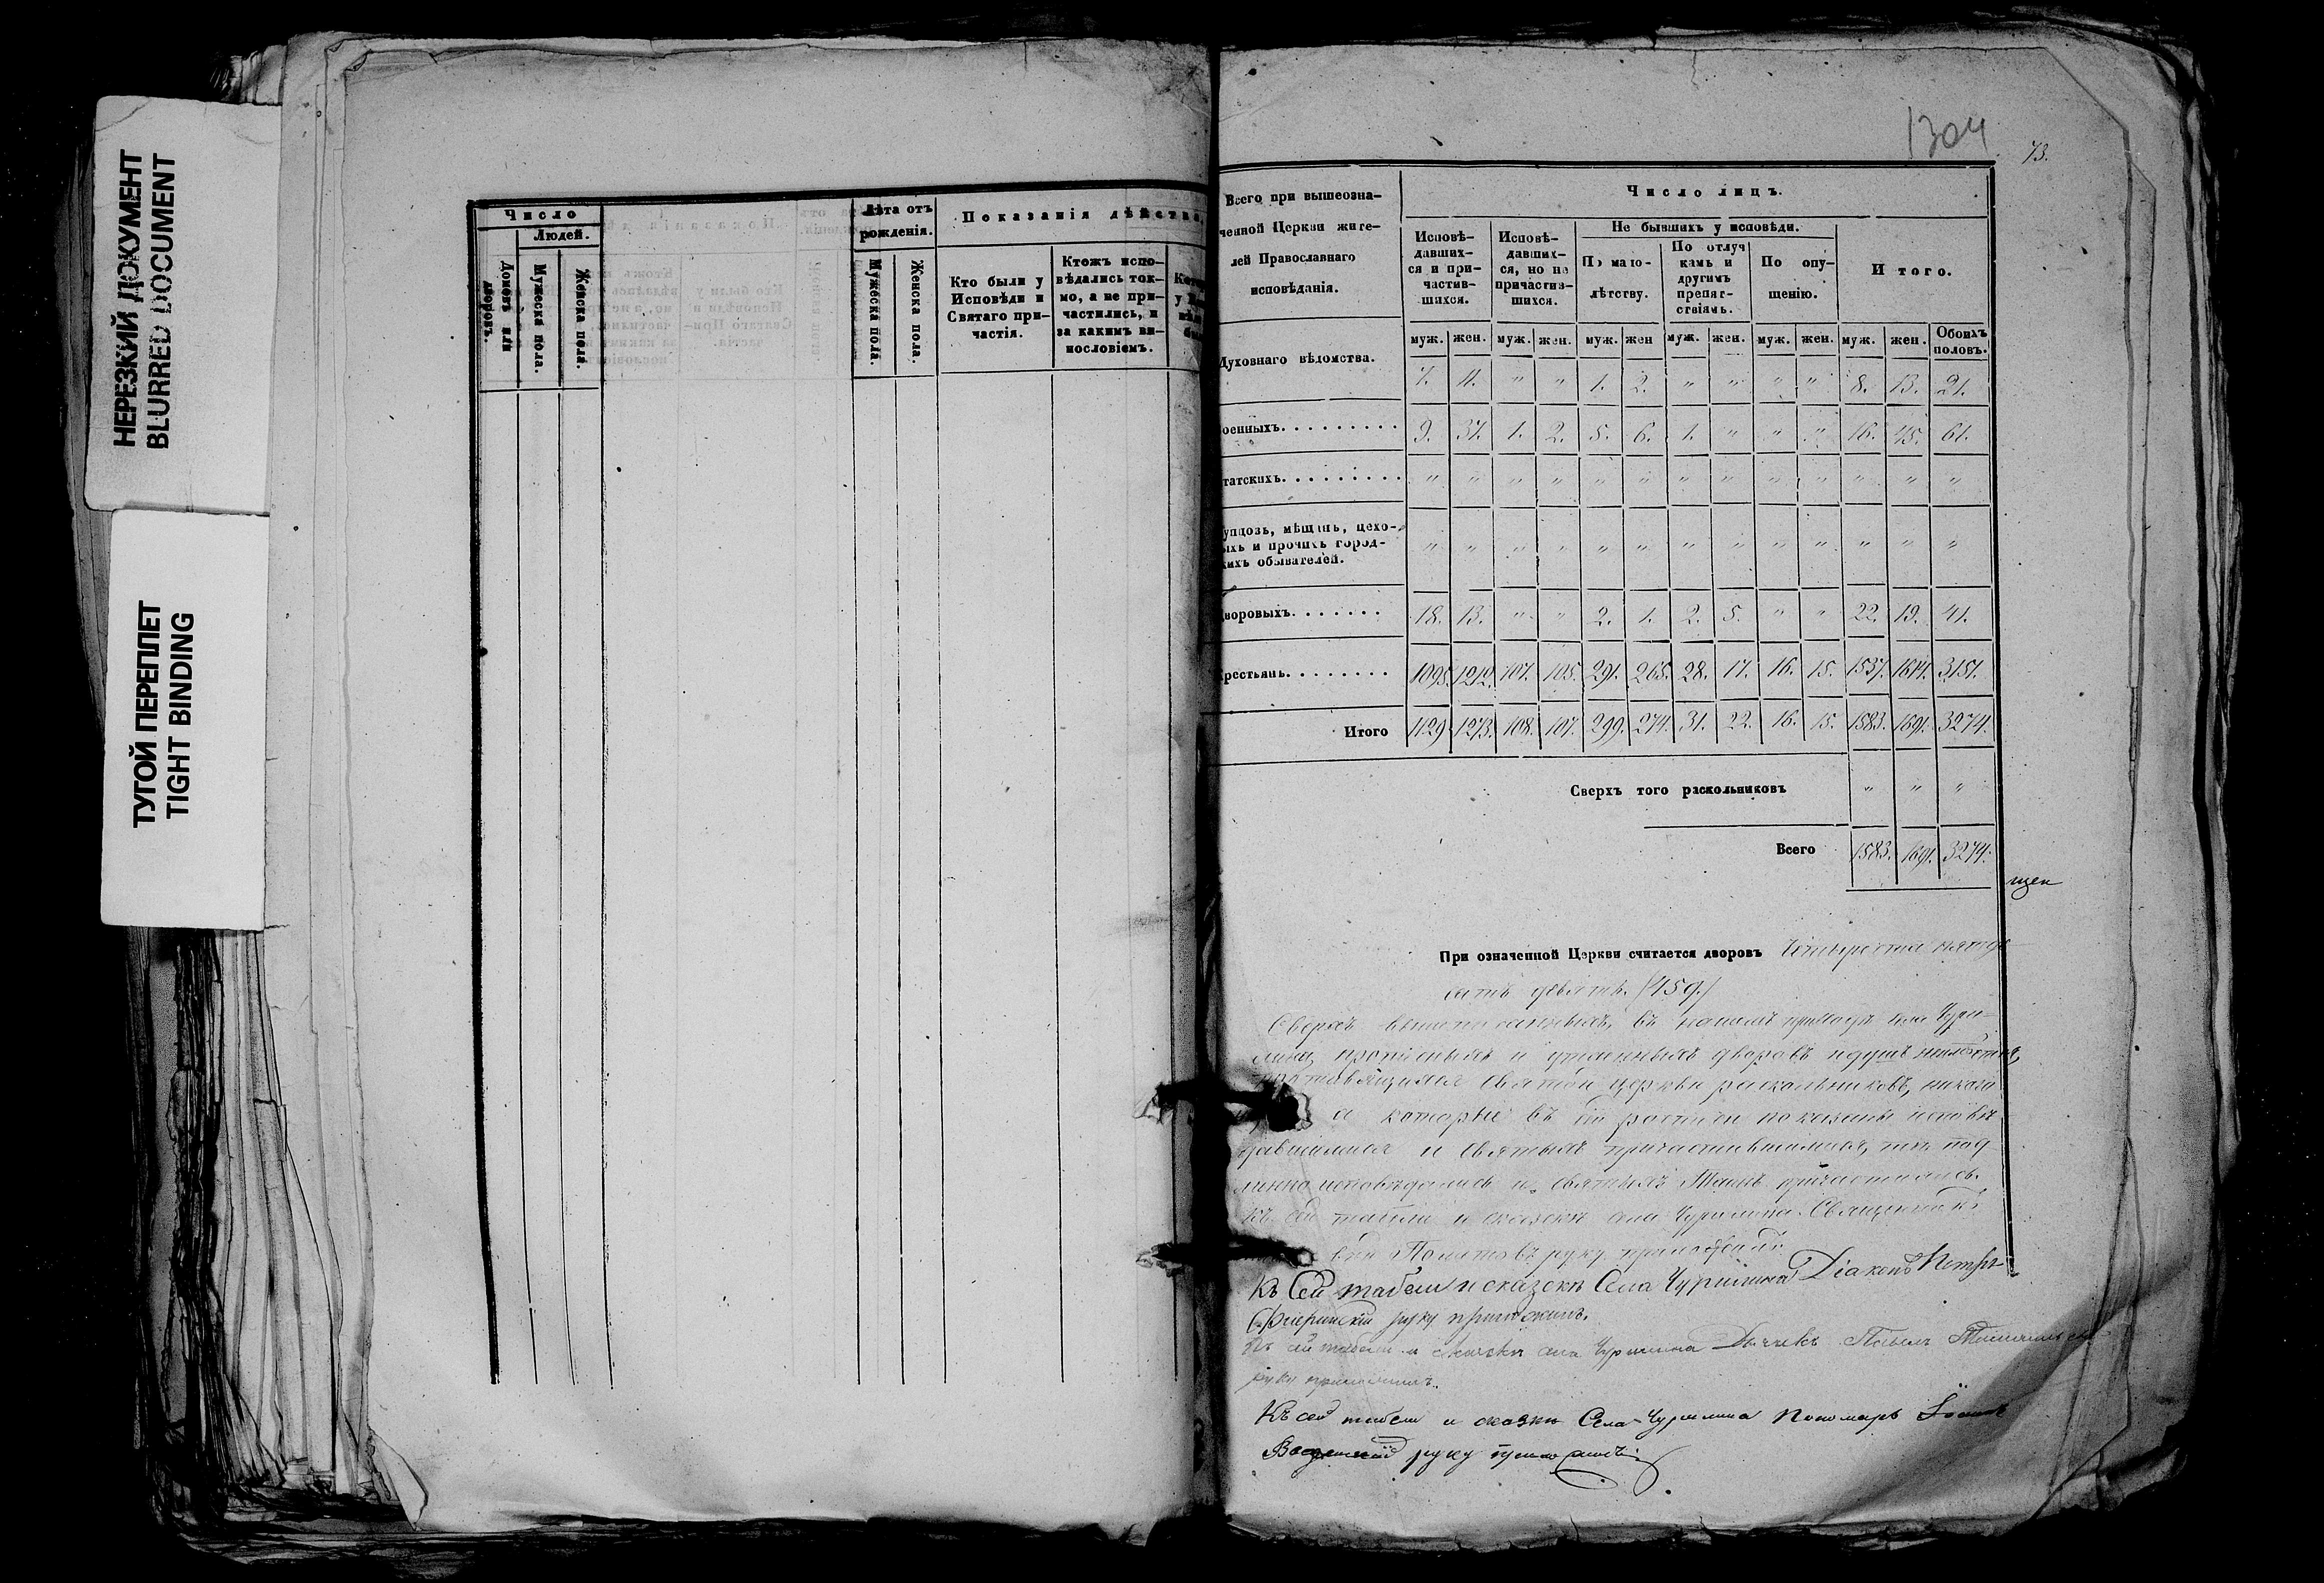 НЕРЕЗКИЙ ДОКУМЕНТ
BLURRED DOCUMENT
ТУГОЙ ПЕРЕПЛЕТ
TIGHT BINDING
Число
Людей.
Домовъ или дворовъ.
Мужеска пола.
Женска пола.
Лѣта отъ
рожденія.
Мужеска пола.
Женска пола.
Показанія дѣйства
Кто были у
Исповѣди и
Святаго при-
частія.
Ктожъ испо-
вѣдались ток-
мо, а не при-
частились, и
за какимъ ви-
нословіемъ.
1304
73.
Всего при вышеозна-
ченной Церкви жите-
лей Православнаго
исповѣданія.
Число лицъ.
Исповѣ-
давших-
ся и при-
частив-
шихся.
Исповѣ-
давших-
ся, но не
причастив-
шихся.
Не бывшихъ у исповѣди.
По мало-
лѣтству.
По отлуч
камъ и
другимъ
препят-
ствіямъ.
По опу-
щенію.
Итого.
муж. жен. муж. жен. муж. жен муж. жен. муж. жен. муж. жен. Обоихъ половъ.
Духовнаго вѣдомства. 7. 11. " " 1. 2. " " " " 8. 13. 21.
оенныхъ. 9. 37. 1. 2. 5. 6. 1. " " " 16. 45. 61.
татскихъ. " " " " " " " " " " " " "
упцовъ, мѣщанъ, цехо-
ыхъ и прочихъ город-
кихъ обывателей. " " " " " " " " " " " " "
воровыхъ. 18. 13. " " 2. 1. 2. 5. " " 22. 19. 41.
рестьянъ. 1095. 1212. 107. 105. 291. 265. 28. 17. 16. 15. 1537. 1614. 3151.
Итого 1129. 1273. 108. 107. 299. 274. 31. 22. 16. 15. 1583. 1691. 3274.
Сверхъ того раскольниковъ " " "
Всего 1583. 1691. 3274.
При означенной Церкви считается дворовъ Четыреста пятьде
сятъ девять. (459.)
Сверхъ вышеписанныхъ, въ нашемъ приходѣ села Чури-
лина, и утаенныхъ дворовъ и душъ
Святой церкви раскольниковъ,
а которые въ сей росписи показаны исповѣ
давшимися и Святыхъ причастившимися, тѣ под
линно исповѣдались и Святыхъ Таинъ причастились.
Къ сей табели и сказкѣ села Чурилина Священникъ
руку приложилъ.
Къ Сей табели и сказкѣ Села Чурилина Діаконъ Петръ
руку приложилъ.
Къ сей табели и сказкѣ села Чурилина Дьячекъ
руку приложилъ.
Къ сей табели и сказкѣ Села Чурилина Пономарь Іоаннъ
Введенскій руку приложилъ